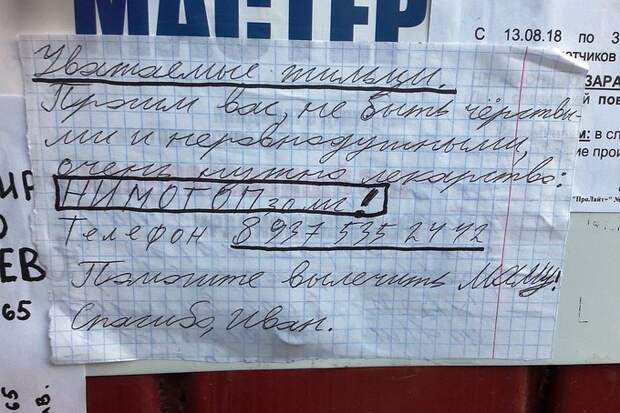 МАСТЕР
С 13.08.18 по 3
отчиков
ЗАРА
пов
м: в сл
ие прои
"ПраЛайт+" №
Уважаемые жильцы.
Просим вас, не быть чёрствы-
ми и неравнодушными,
очень нужно лекарство:
НИМОТОП 30 мг!
Телефон 8 937 535 2442
Помогите вылечить Маму!
Спасибо, Иван.
ИР
О
ЕВ
65
65